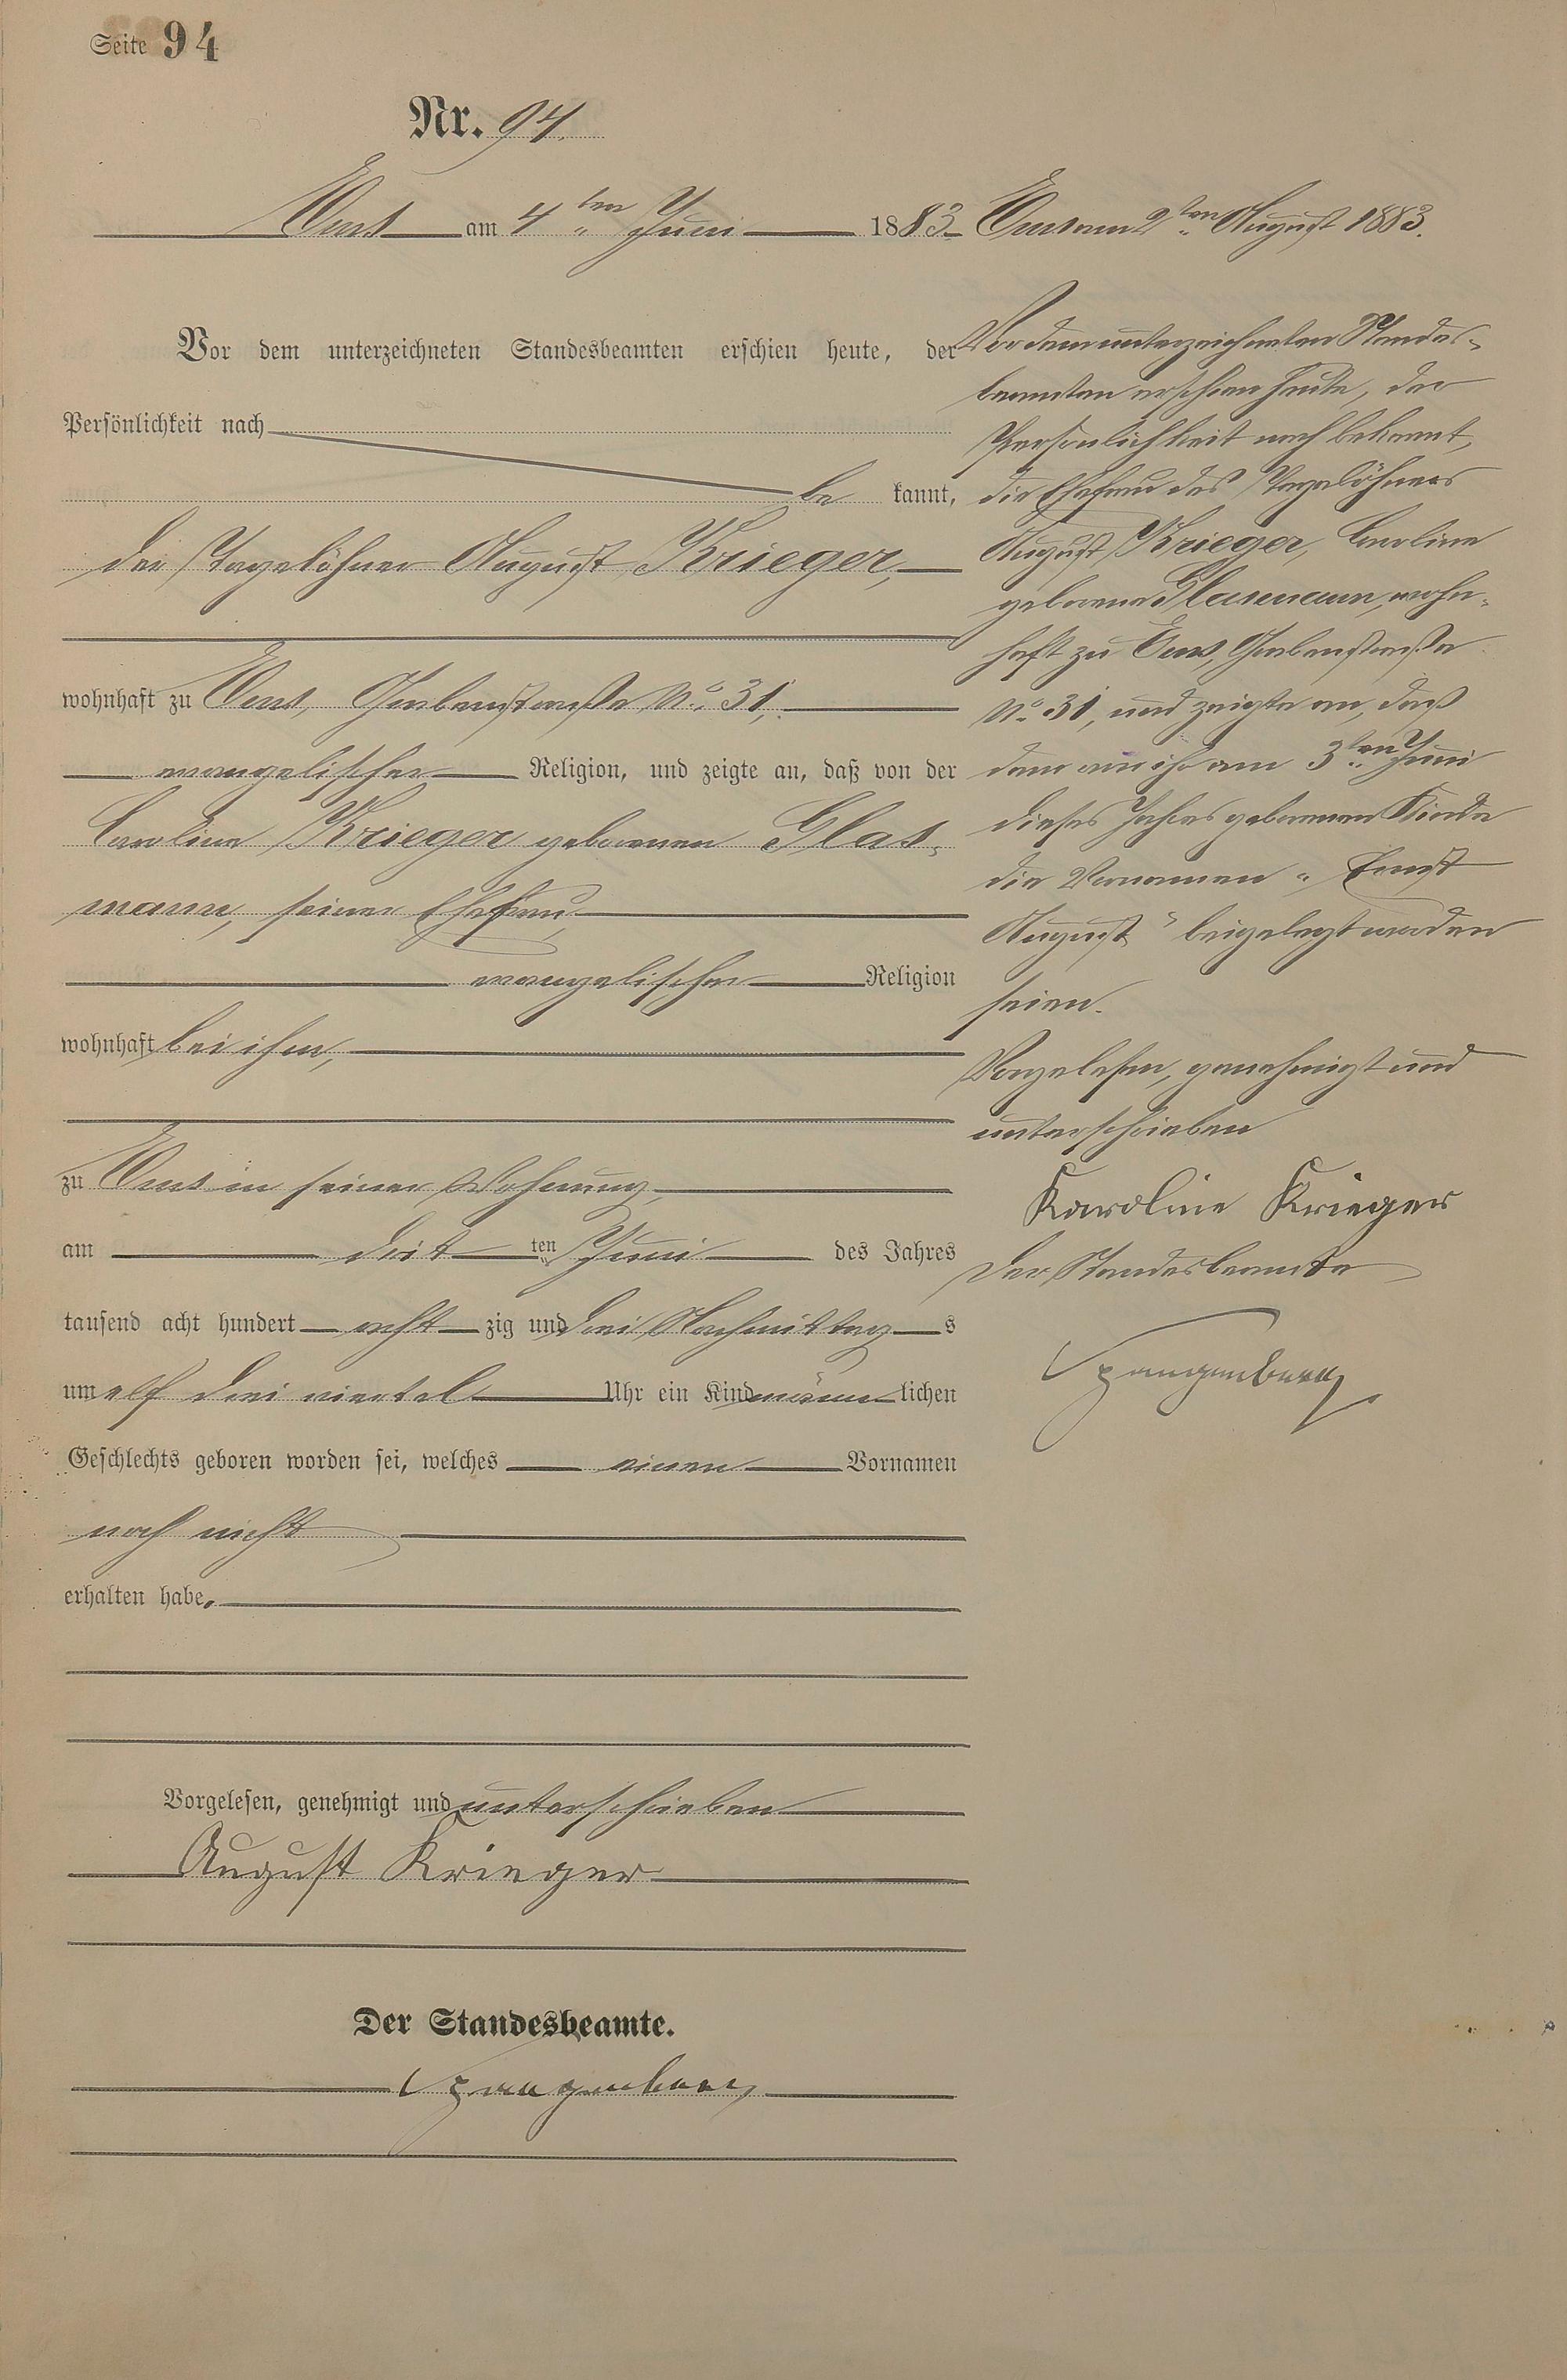 Seite 94
Nr. 94.
Ems am 4ten Juni 1883
Vor dem unterzeichneten Standesbeamten erschien heute, der
Persönlichkeit nach
be kannt,
der Tagelöhner August Krieger,
wohnhaft zu Ems, Grabenstraße No. 31,
evangelischer Religion, und zeigte an, daß von der
Caroline Krieger geborenen Glas-
mann, seiner Ehefrau,
evangelischer Religion
wohnhaft bei ihm,
zu Ems in seiner Wohnung,
am drit ten Juni des Jahres
tausend acht hundert acht zig und drei Nachmittag s
um elf drei viertel Uhr ein Kind männ lichen
Geschlechts geboren worden sei, welches einen Vornamen
noch nicht
erhalten habe.
Vorgelesen, genehmigt und unterschrieben
August Krieger
Der Standesbeamte.
Spangenberg
Ems am 2ten August 1883.
Vor dem unterzeichneten Standes-
beamten erschien heute, der
Persönlichkeit nach bekannt,
die Ehefrau des Tagelöhners
August Krieger, Caroline
geborene Glasmann, wohn-
haft zu Ems, Grabenstraße
No. 31, und zeigte an, daß
dem von ihr am 3ten Juni
dieses Jahres geborenen Kinde
die Vornamen „Ernst
August" beigelegt worden
seien.
Vorgelesen, genehmigt und
unterschrieben
Karoline Krieger
Der Standesbeamte
Spangenberg